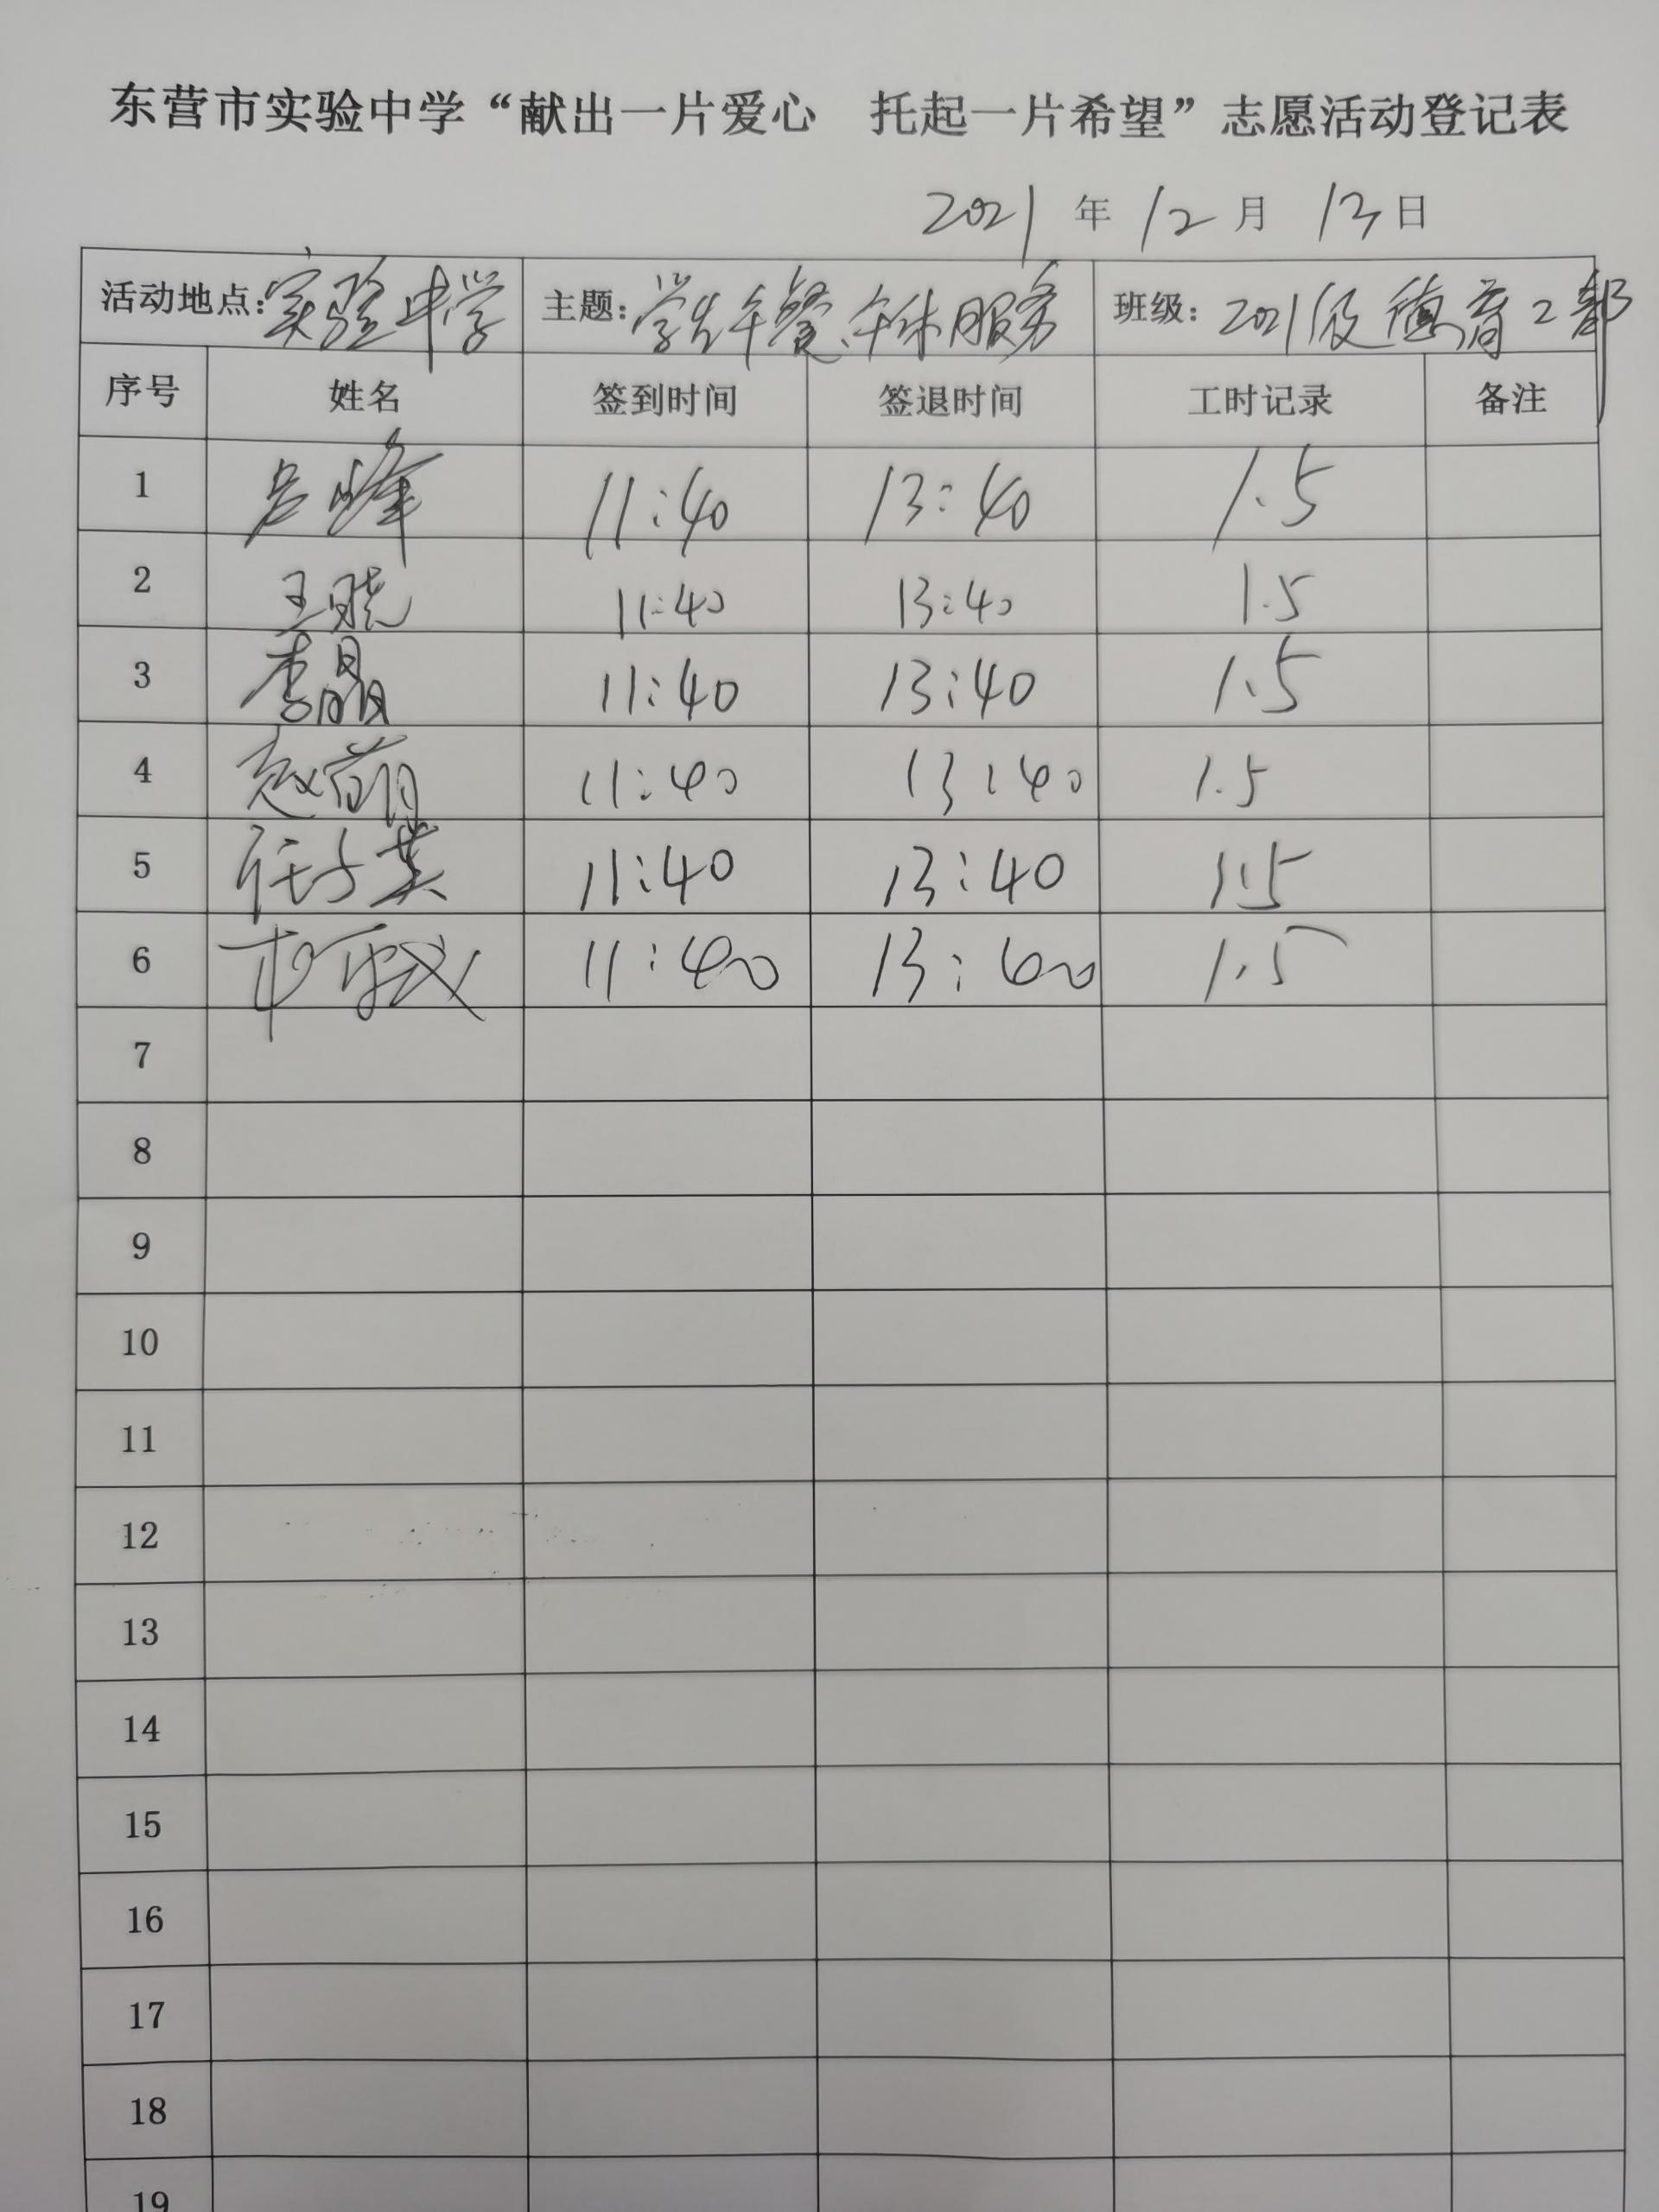 东营市实验中学“献出一片爱心　托起一片希望”志愿活动登记表
2021 年 12 月 13 日
活动地点：实验中学 主题：学生午餐、午休服务 班级：2021级德育2部
序号 姓名 签到时间 签退时间 工时记录 备注
1 峰 11:40 13:40 1.5
2 王晓 11:40 13:40 1.5
3 李晶 11:40 13:40 1.5
4 赵萌 11:40 13:40 1.5
5 任方英 11:40 13:40 1.5
6 11:40 13:40 1.5
7
8
9
10
11
12
13
14
15
16
17
18
19